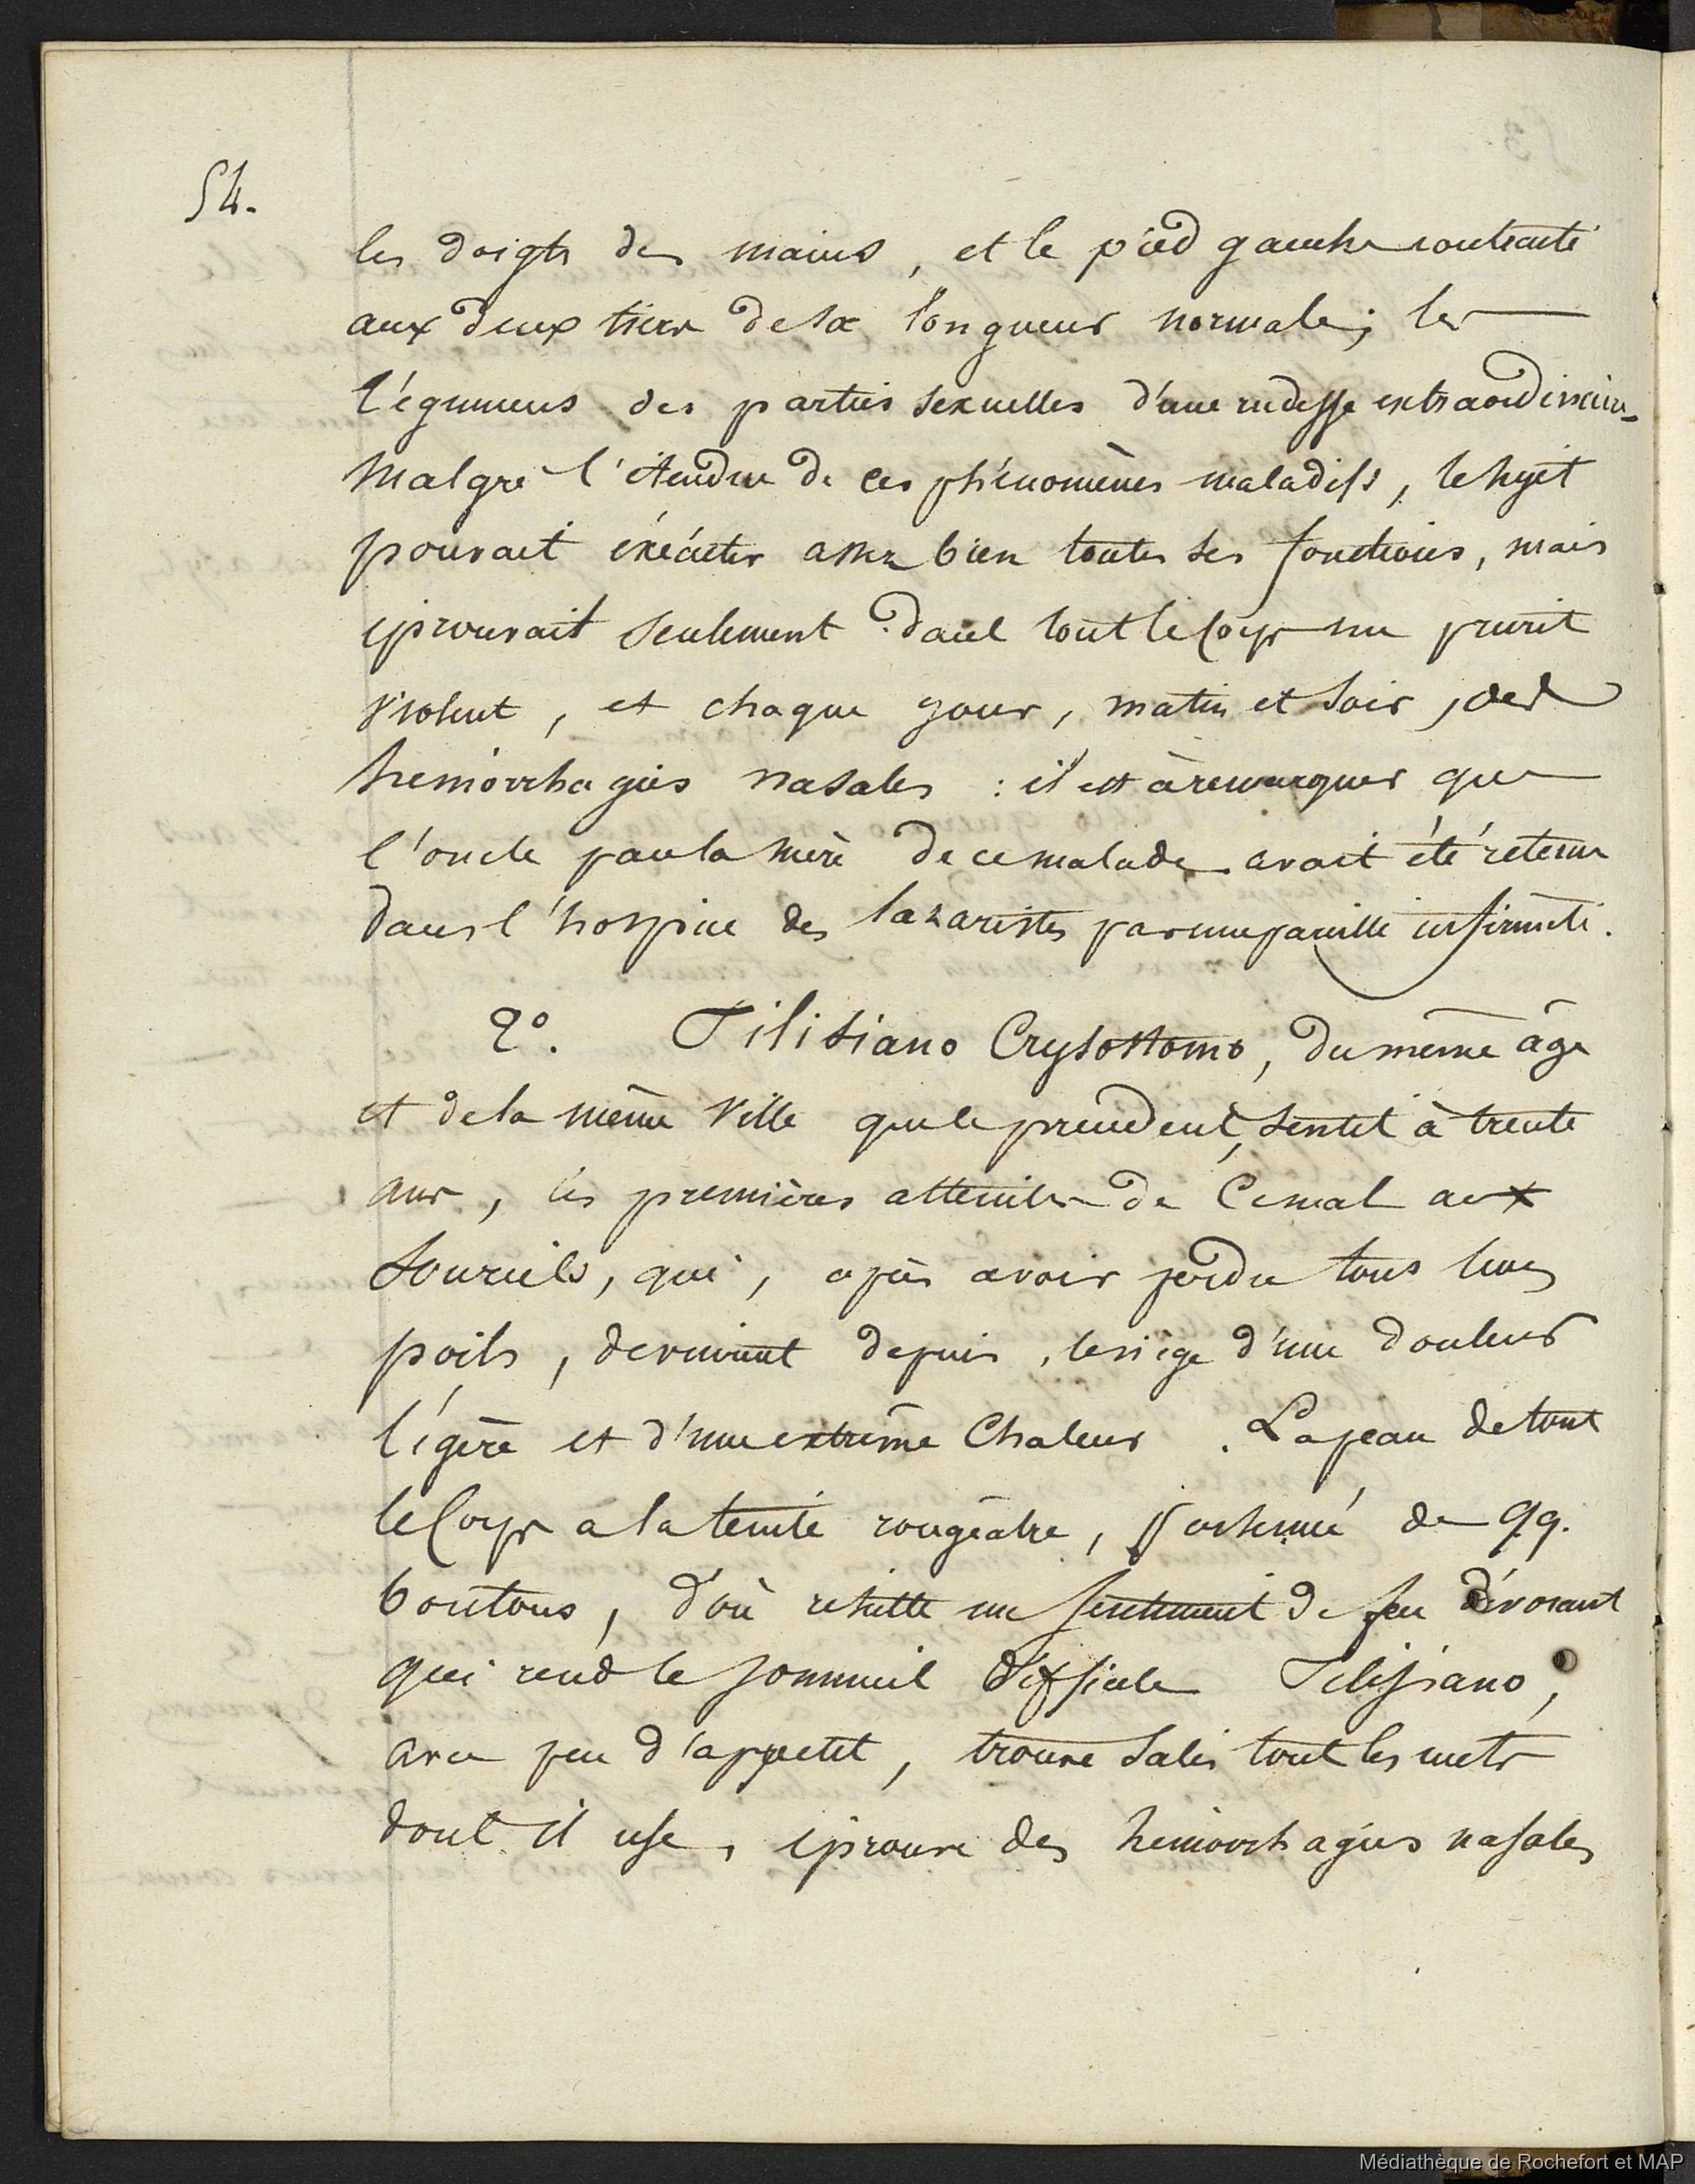 54.
les doigts des mains, et le pied gauche contracté
aux deux tiers de sa longueur normale; les
téguments des parties sexuelles d'une rudesse extraordinaire.
Malgré l'étendue de ces phénomènes maladifs, le sujet
pouvait exécuter assez bien toutes ses fonctions, mais
éprouvait seulement dans tout le corps un prurit
violent, et chaque jour, matin et soir, des
hémorrhagies nasales : il est à remarquer que
l'oncle par la mère de ce malade avait été retenu
dans l'hospice des lazaristes par une pareille infirmité.
2º. Tilisiano Crysostomo, du même âge
et de la même ville que le précédent, sentit à trente
ans, les premières atteintes de ce mal aux
sourcils, qui, après avoir perdu tous leurs
poils, devinrent depuis, le siège d'une douleur
légère et d'une extrême chaleur. La peau de tout
le corps a la teinte rougeâtre, parsemé de qq.
boutons, d'où résulte un sentiment de feu dévorant
qui rend le sommeil difficile Telisiano,
avec peu d'appetit, trouve salés tout les mets
dont il use, éprouve des hémorrhagies nasales
Médiathèque de Rochefort et MAP